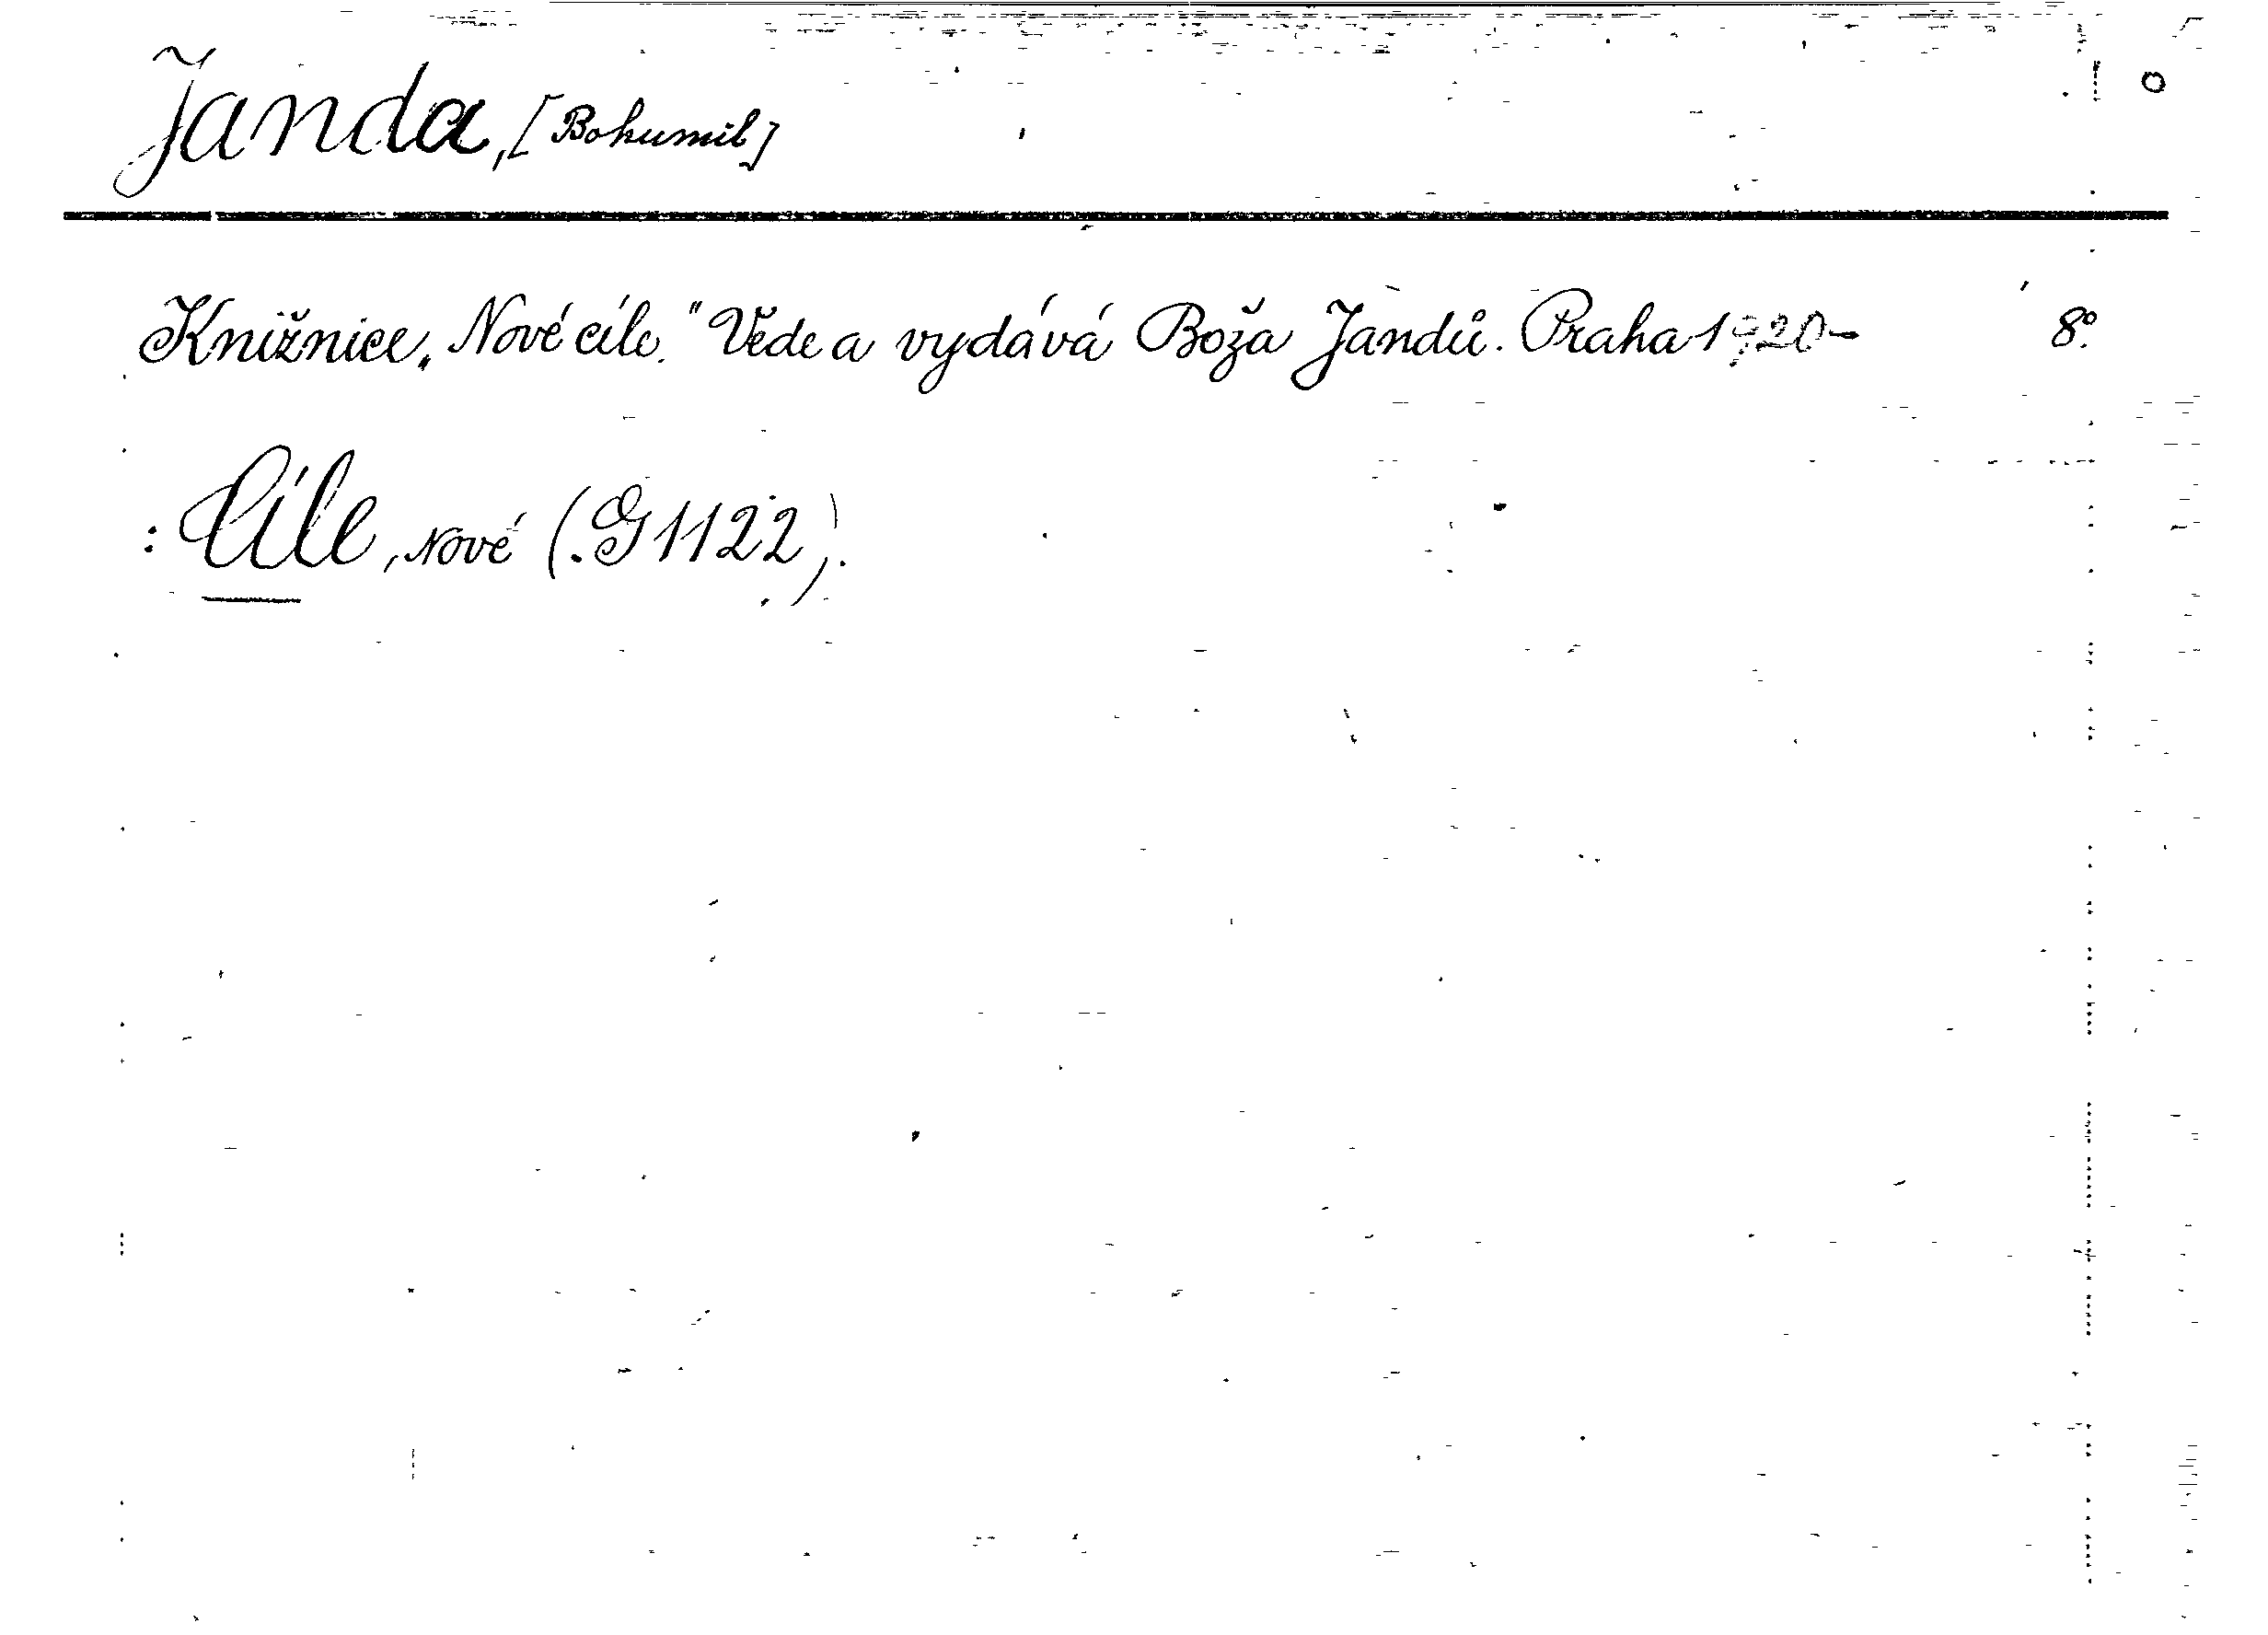 Janda, [Bohumil]
Knižnice „Nové cíle." Vede a vydává Boža Jandů. Praha 1920- 8°.
: Cíle, Nové (.G 1122).